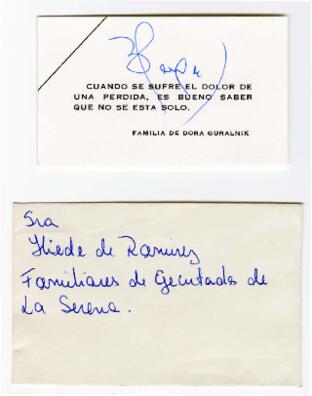 CUANDO SE SUFRE EL DOLOR DE
UNA PERDIDA, ES BUENO SABER
QUE NO SE ESTA SOLO.
FAMILIA DE DORA GURALNIK
Sra
Hiede de Ramirez
Familiares de Ejecutados de
La Serena.